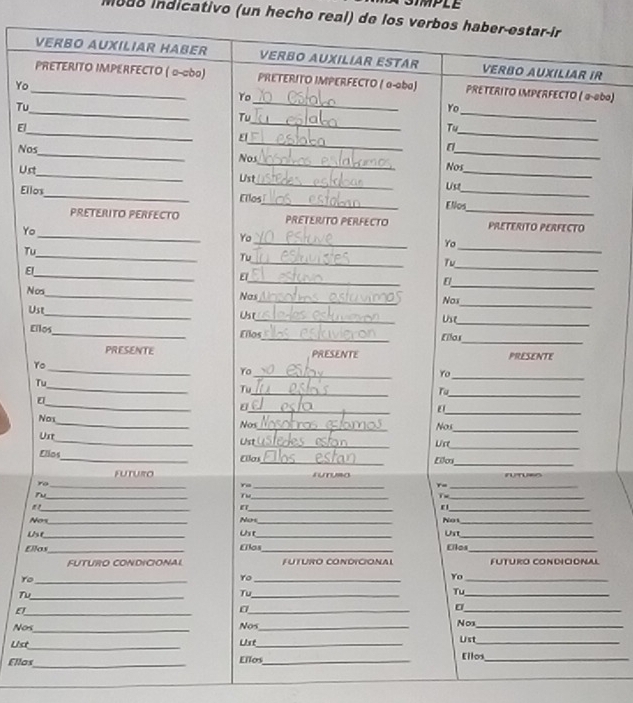 FORMA SIMPLE
Modo indicativo (un hecho real) de los verbos haber-estar-ir
VERBO AUXILIAR HABER
PRETERITO IMPERFECTO ( a-aba)
Yo
Tu
El
Nos
Ust
Ellos
PRETERITO PERFECTO
Yo
Tu
El
Nos
Ust
Ellos
PRESENTE
Yo
Tu
El
Nos
Ust
Ellos
FUTURO
Yo
Tu
El
Nos
Ust
Ellos
FUTURO CONDICIONAL
Yo
Tu
El
Nos
Ust
Ellos
VERBO AUXILIAR ESTAR
PRETERITO IMPERFECTO ( a-aba)
Yo Yo estaba
Tu Tu estaba
El El estaba
Nos Nosotros estabamos
Ust ustedes estaban
Ellos Ellos estaban
PRETERITO PERFECTO
Yo yo estuve
Tu Tu estuvistes
El El estuvo
Nos Nosotros estuvimos
Ust ustedes estuvieron
Ellos ellos estuvieron
PRESENTE
Yo yo estoy
Tu Tu estás
El El esta
Nos Nosotros estamos
Ust ustedes estan
Ellos Ellos estan
FUTURO
Yo
Tu
El
Nos
Ust
Ellos
FUTURO CONDICIONAL
Yo
Tu
El
Nos
Ust
Ellos
VERBO AUXILIAR IR
PRETERITO IMPERFECTO ( a-aba)
Yo
Tu
El
Nos
Ust
Ellos
PRETERITO PERFECTO
Yo
Tu
El
Nos
Ust
Ellos
PRESENTE
Yo
Tu
El
Nos
Ust
Ellos
FUTURO
Yo
Tu
El
Nos
Ust
Ellos
FUTURO CONDICIONAL
Yo
Tu
El
Nos
Ust
Ellos